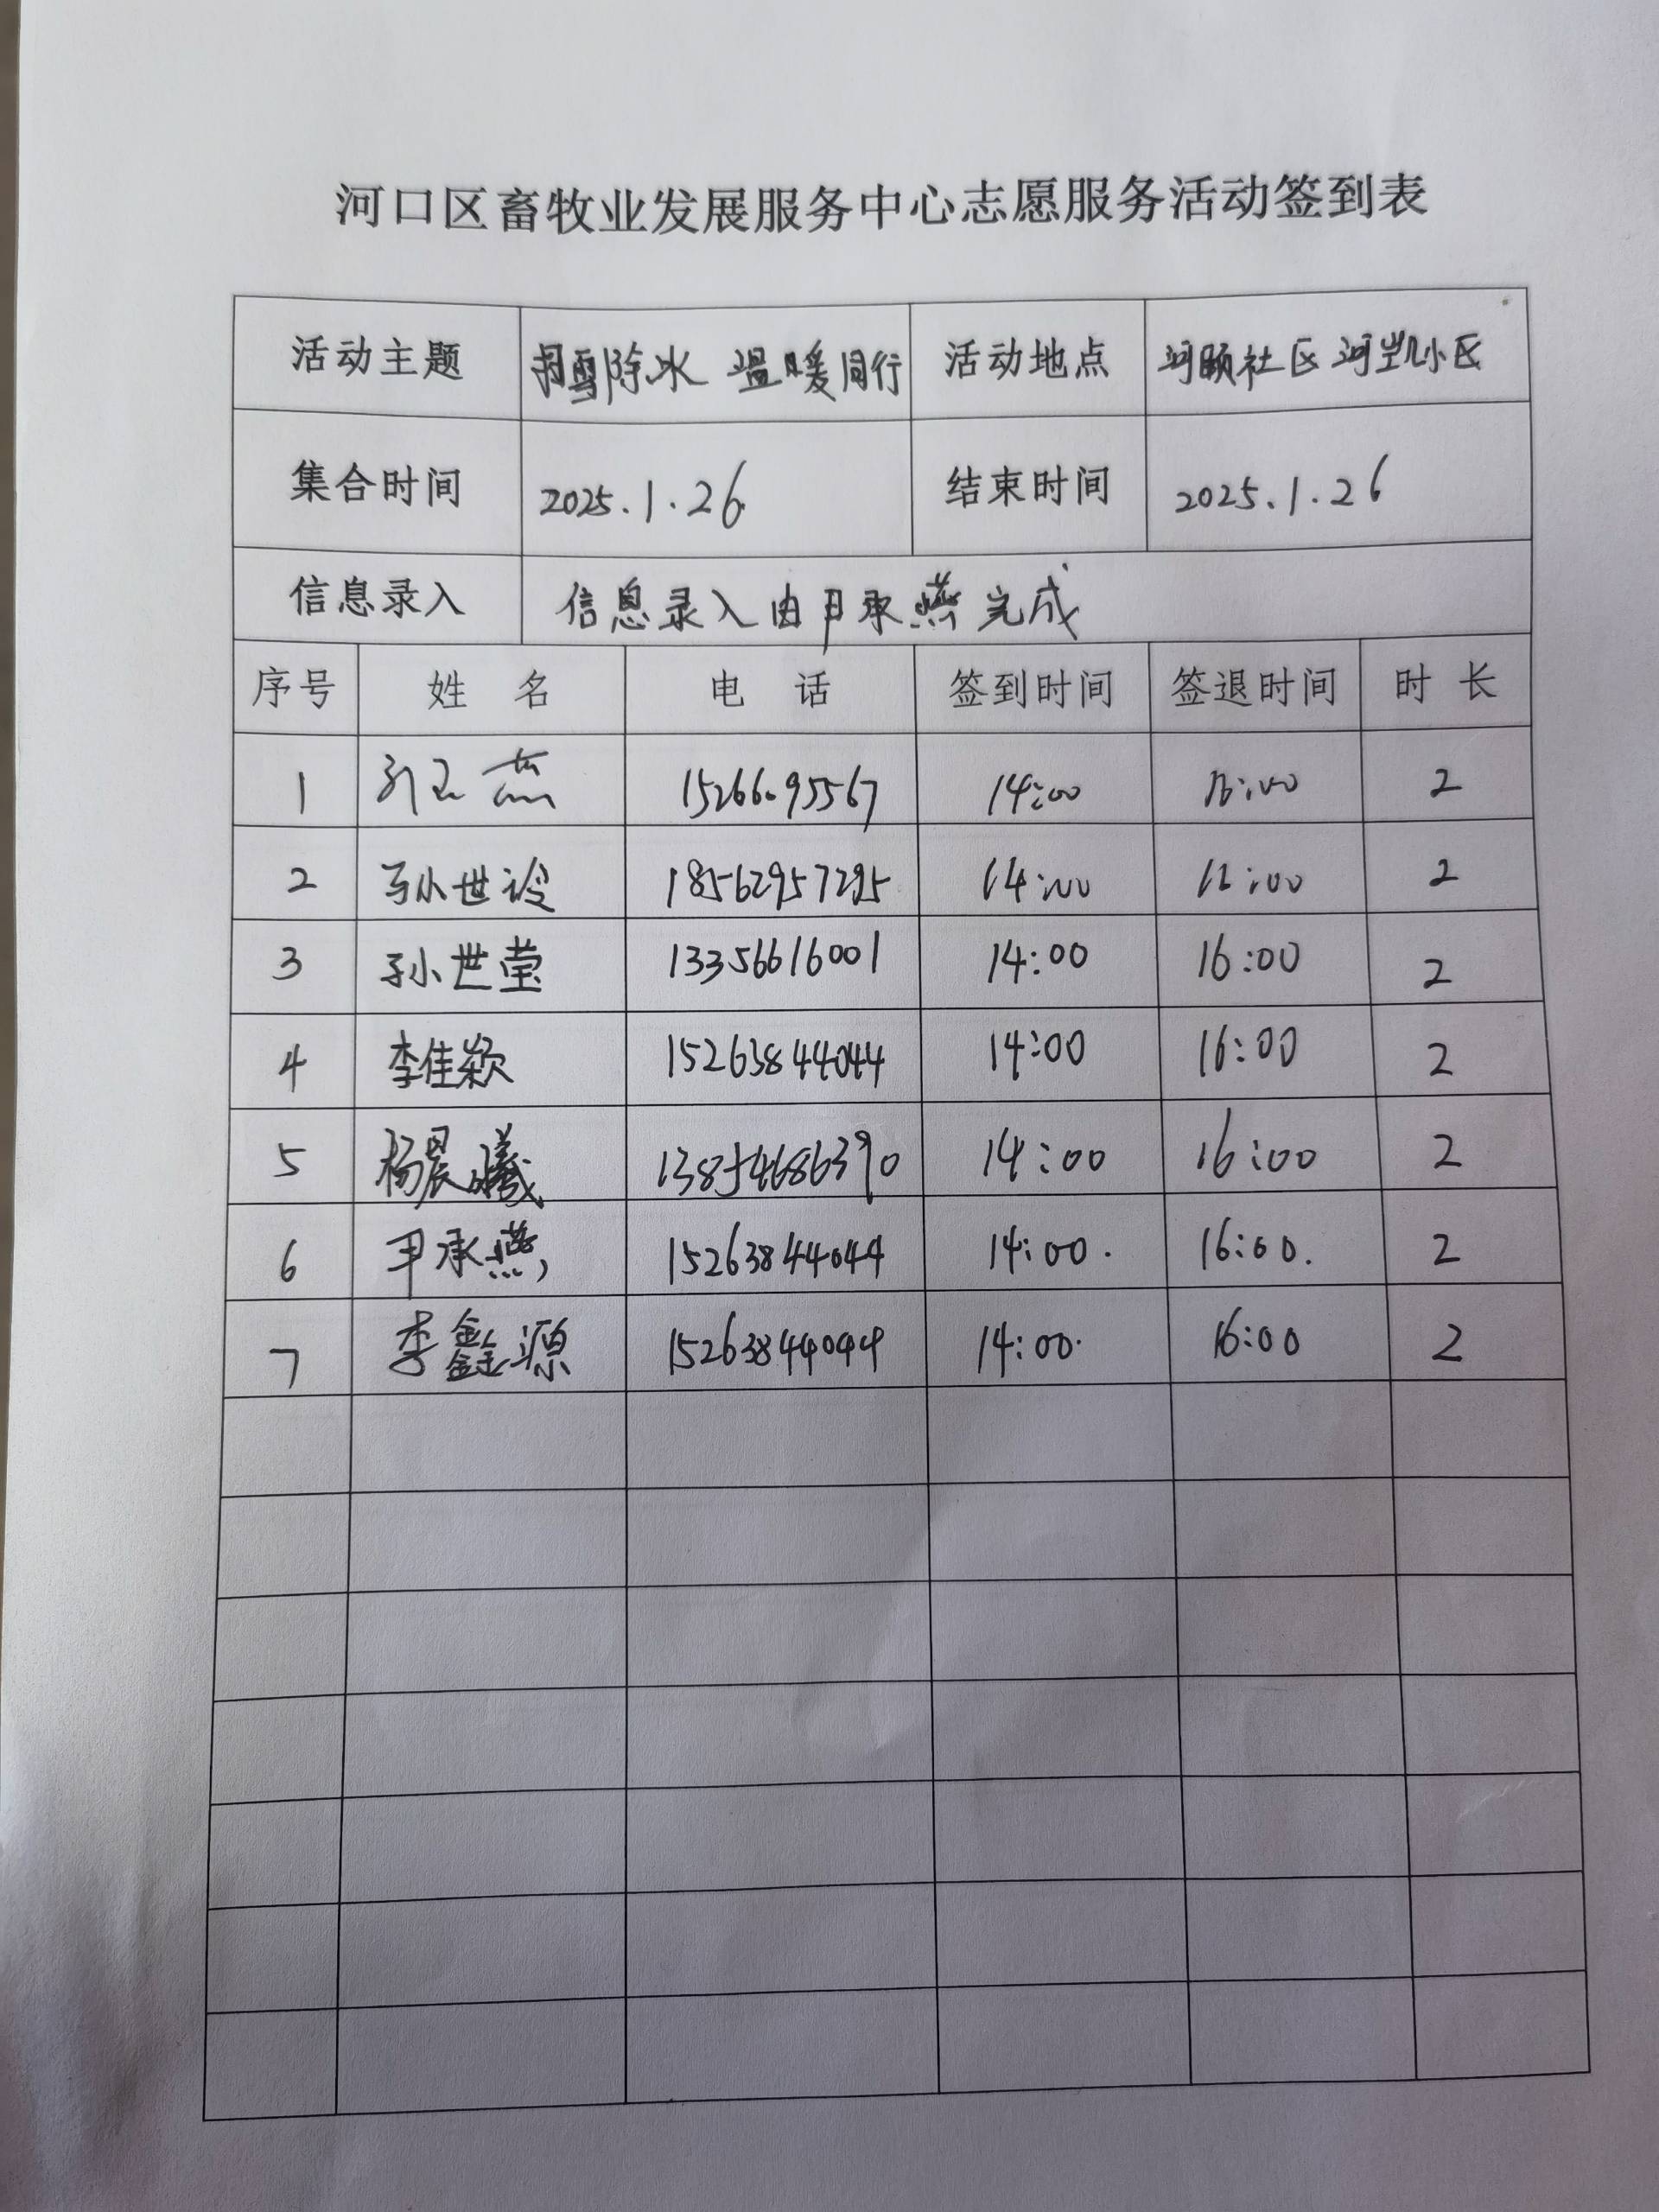 河口区畜牧业发展服务中心志愿服务活动签到表
活动主题 扫雪除冰 温暖同行 活动地点 河颐社区 河凯小区
集合时间 2025.1.26 结束时间 2025.1.26
信息录入 信息录入由尹承燕完成
序号 姓 名 电 话 签到时间 签退时间 时 长
1 15266095567 14:00 16:00 2
2 孙世 18562957295 14:00 16:00 2
3 孙世莹 13356616001 14:00 16:00 2
4 李佳颖 15263844044 14:00 16:00 2
5 杨晨曦 13854686390 14:00 16:00 2
6 尹承燕 15263844044 14:00. 16:00. 2
7 李鑫源 15263844044 14:00. 16:00 2